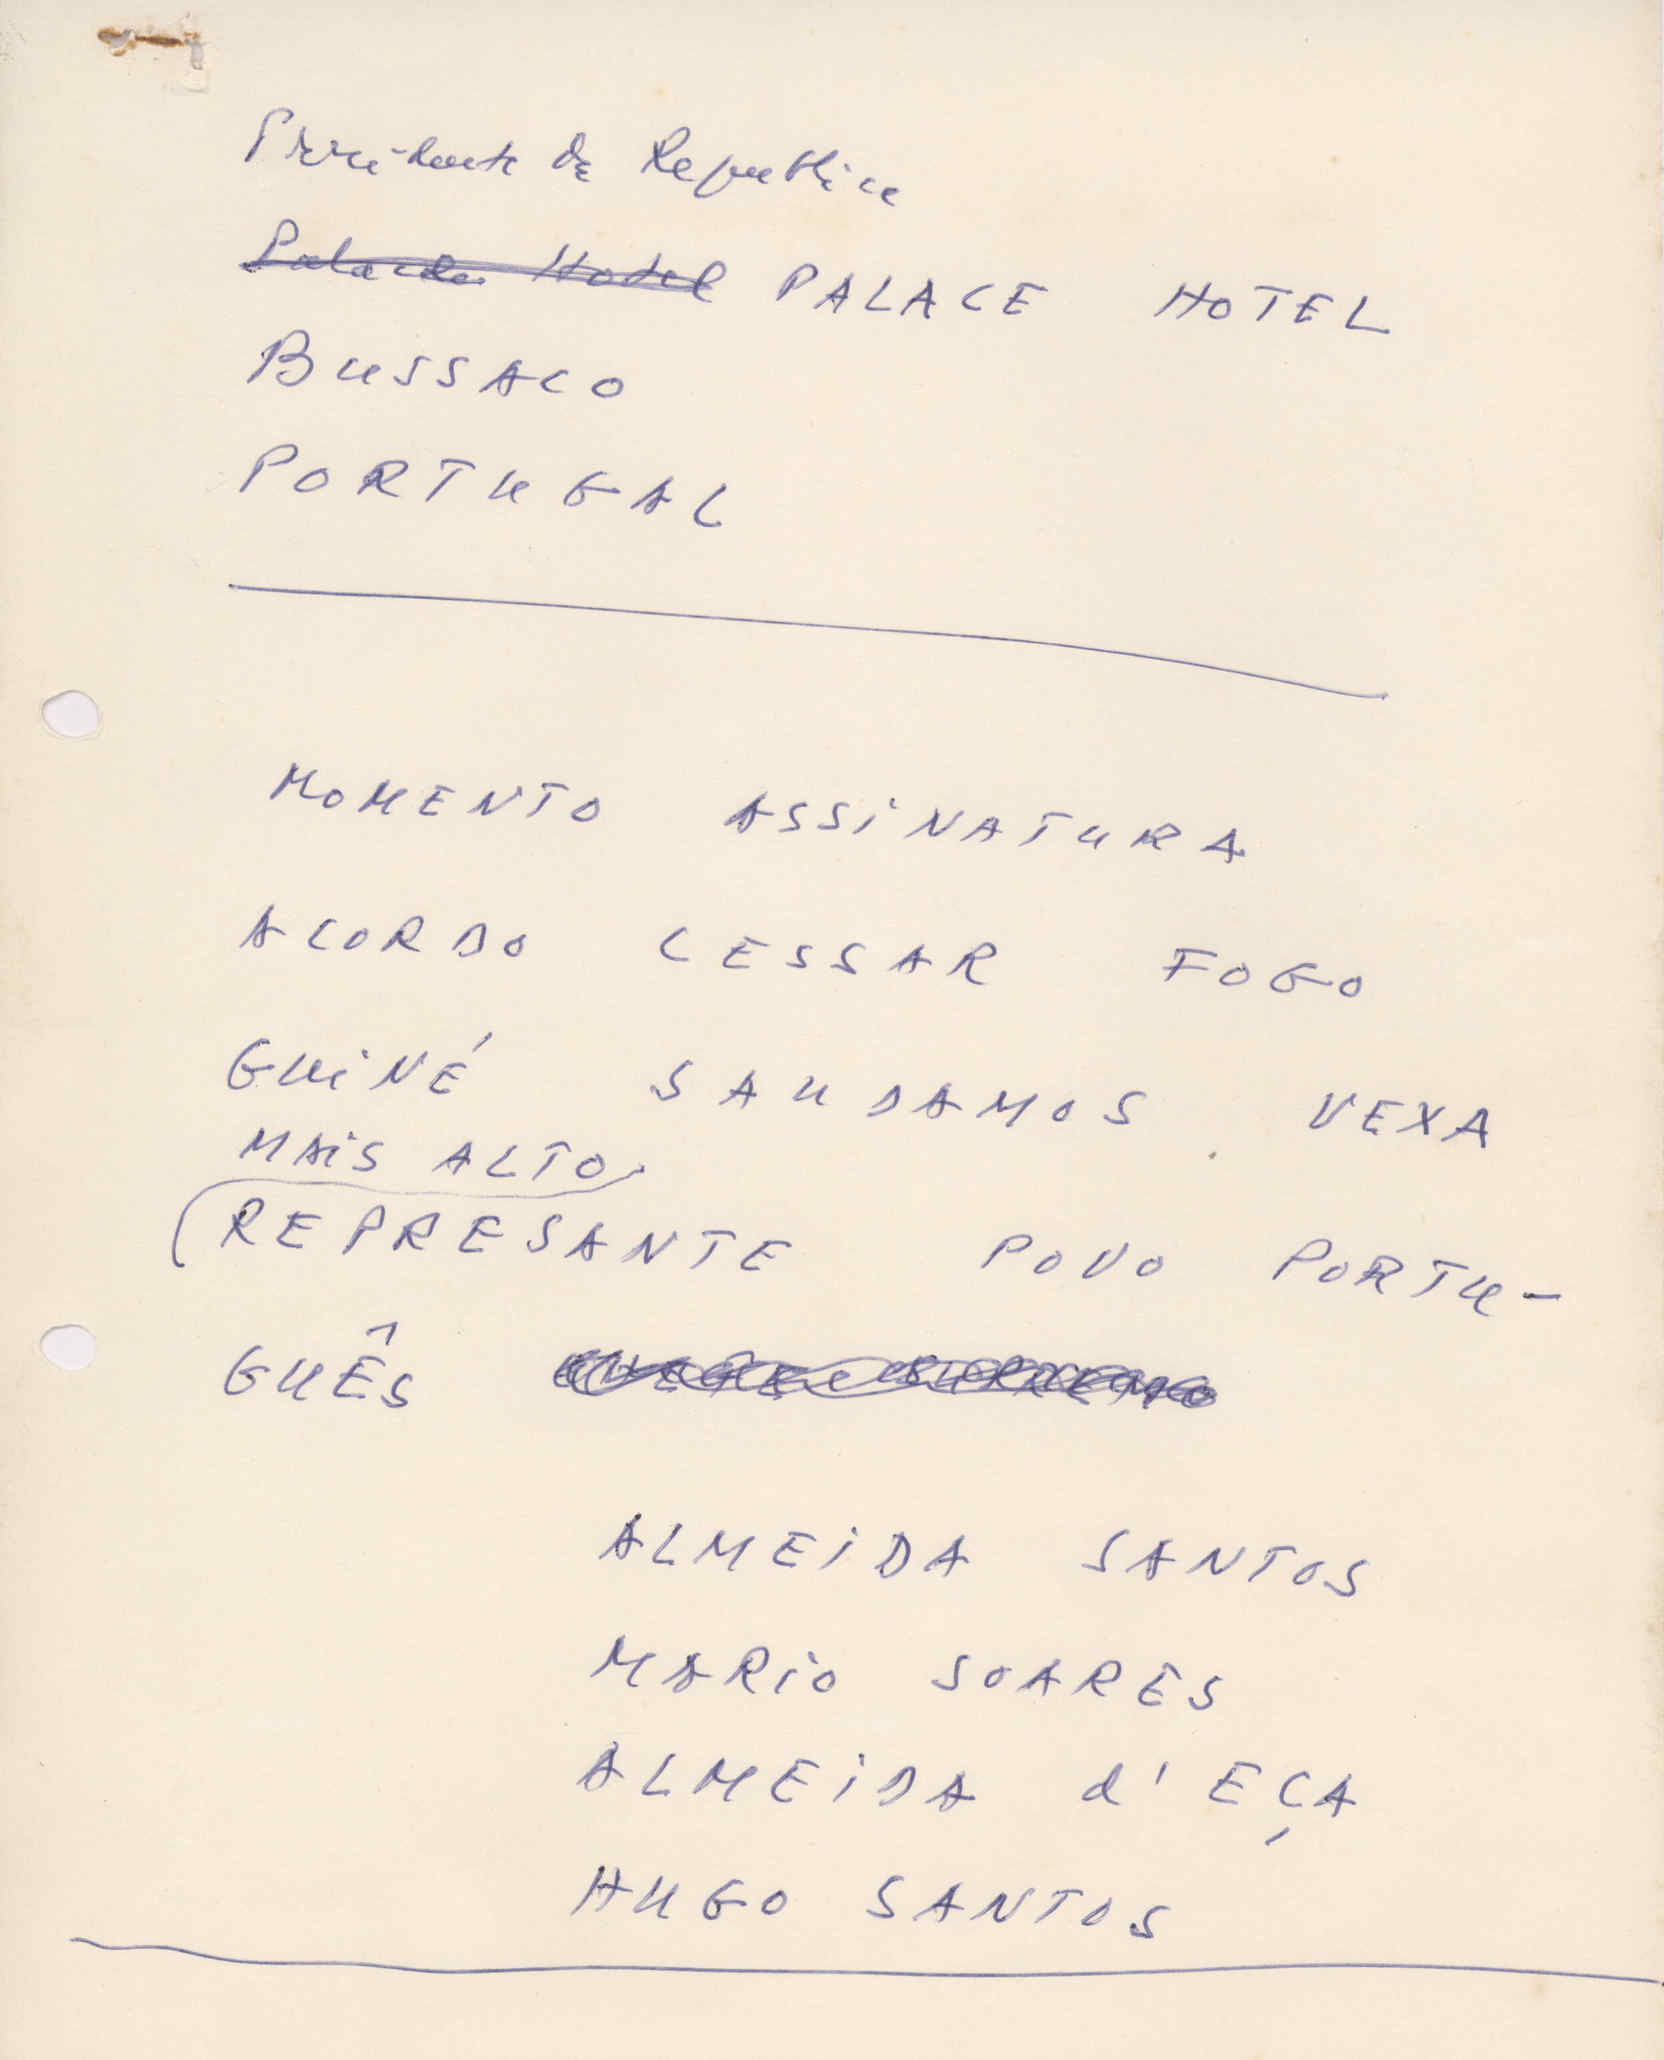 Presidente da Republica
Palace Hotel PALACE HOTEL
BUSSACO
PORTUGAL
MOMENTO ASSINATURA
ACORDO CESSAR FOGO
GUINÉ SAUDAMOS VEXA
MAIS ALTO
REPRESANTE POVO PORTU-
GUÊS
ALMEIDA SANTOS
MARIO SOARES
ALMEIDA d'EÇA
HUGO SANTOS